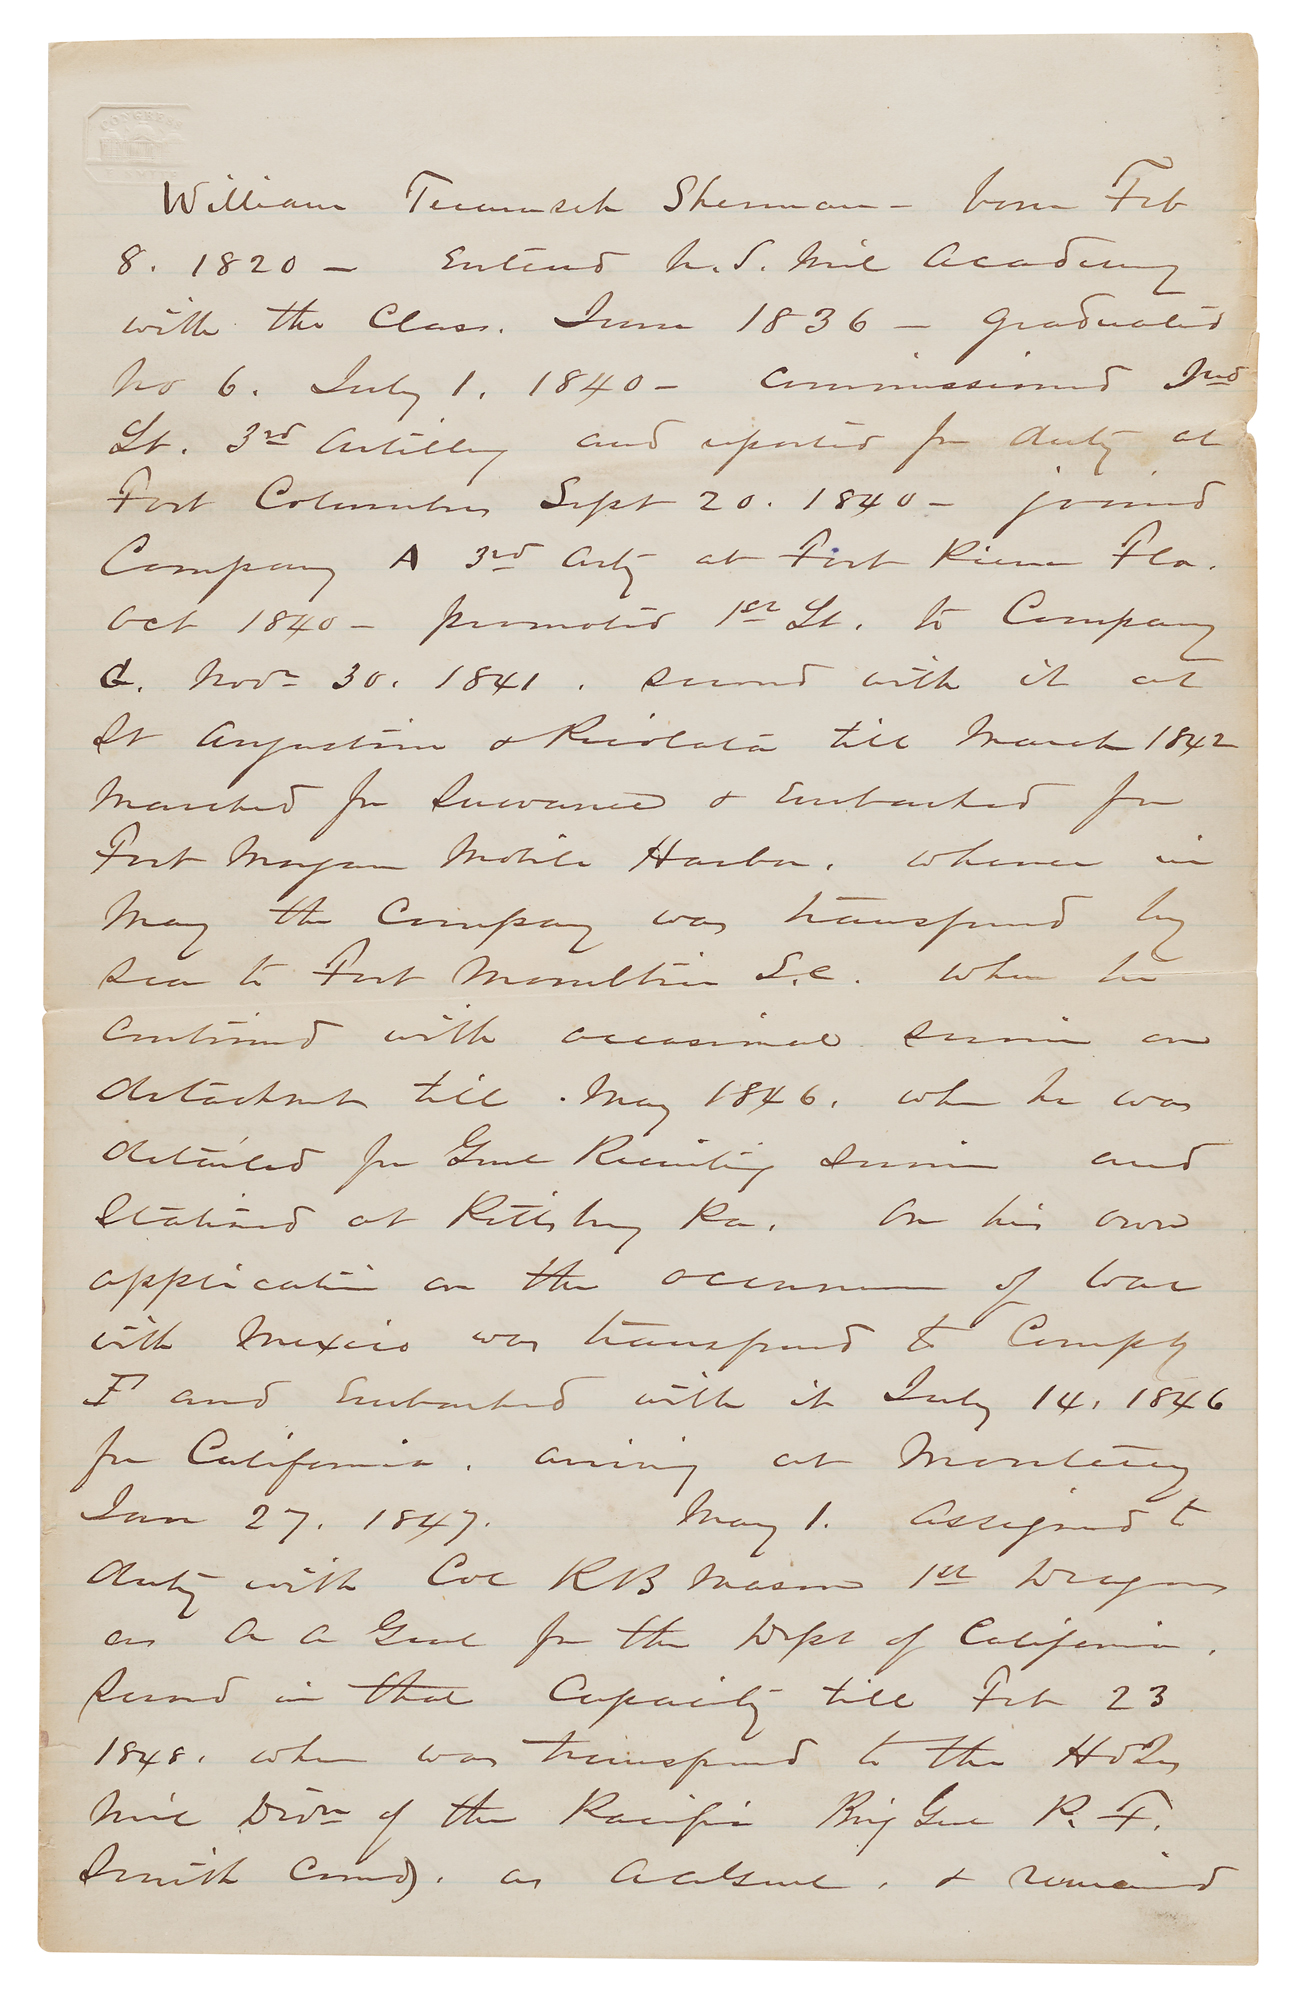 CONGRESS
William Tecumseh Sherman - born Feb
8. 1820 - Entered U.S. Mil Academy
with the Class. June 1836 - graduated
No 6. July 1. 1840 - commissioned 2nd
Lt. 3rd Artillery and reported for duty at
Fort Columbus Sept 20. 1840 - joined
Company A 3rd Arty at Fort Pierce Fla.
Oct 1840 - promoted 1st Lt. to Company
G. Novr 30. 1841. served with it at
St Augustine & Picolata till March 1842
Marched for Suwanee & Embarked for
Fort Morgan Mobile Harbor. whence in
May the Company was transferred by
sea to Fort Moultrie S.C. when he
continued with occasional service on
detachmt till May 1846. when he was
detailed for Genl Recruiting Service and
Stationed at Pittsburg Pa. On his own
application on the occurrence of War
with Mexico was transferred to Compy
F and Embarked with it July 14. 1846
for California. arriving at Monterey
Jan 27. 1847. May 1. assigned to
duty with Col R B Mason 1st Dragoons
as A A Genl for the Dept of California.
Served in that Capacity till Feb 23
1848. when was transferred to the Hd Qrs
Mil Divn of the Pacific Brig Genl P. F.
Smith Comd). as A A Genl. & remained